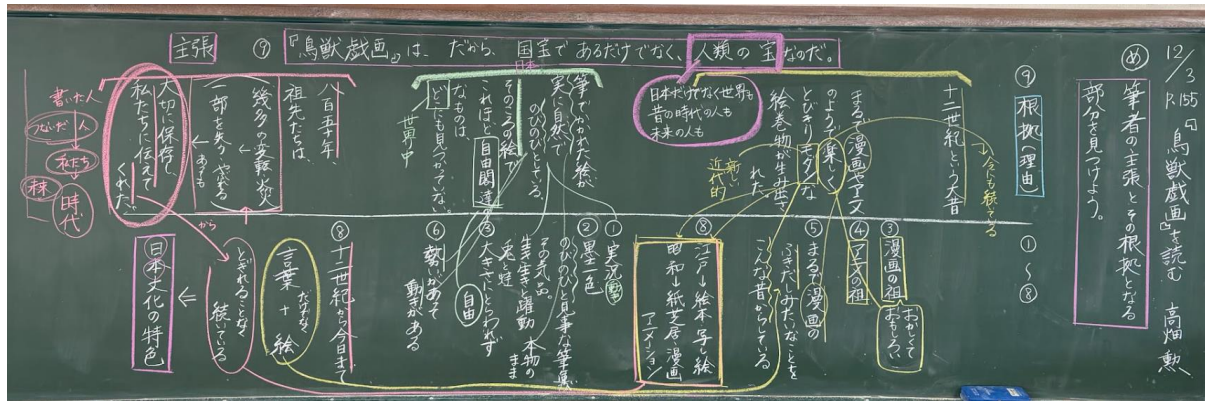 12/3
P.155
『鳥獣戯画』を読む 高畑 勲
め
筆者の主張とその根拠となる
部分を見つけよう。
主張 ⑨ 『鳥獣戯画』は、だから、国宝であるだけでなく、人類の宝なのだ。
日本
⑨ 根拠(理由) ①～⑧
今にも続いている
十二世紀という大昔
まるで漫画やアニメ
のような楽しく
とびきりモダンな
絵巻物が生み出さ
れた。
新しい
近代的
日本だけでなく世界も
昔の時代の人も
未来の人も
筆でかかれた絵が
実に自然で
のびのびとしている。
そのころの絵で
これほど自由闊達
なものは、
どこにも見つかっていない。
世界中
八百五十年
祖先たちは、
幾多の変転や火災
一部を失うやぶれる
あっても
大切に保存し
私たちに伝えて
くれた。
書いた人
つないだ人
私たち
未来
時代
③ 漫画の祖
おかしくて
おもしろい
④ アニメの祖
⑤ まるで漫画の
ふきだしみたいなことを
こんな昔からしている
⑧ 江戸→絵本 写し絵
昭和→紙芝居 漫画
アニメーション
① 実況
② 墨一色
のびのびと見事な筆運
その気品。
生き生きと躍動 本物の
まま
兎と蛙
③ 大きさにとらわれず
自由
⑥ 勢いがあって
動きがある
⑧ 十二世紀から今日まで
言葉 + 絵
から
とぎれることなく
続いている
日本文化の特色